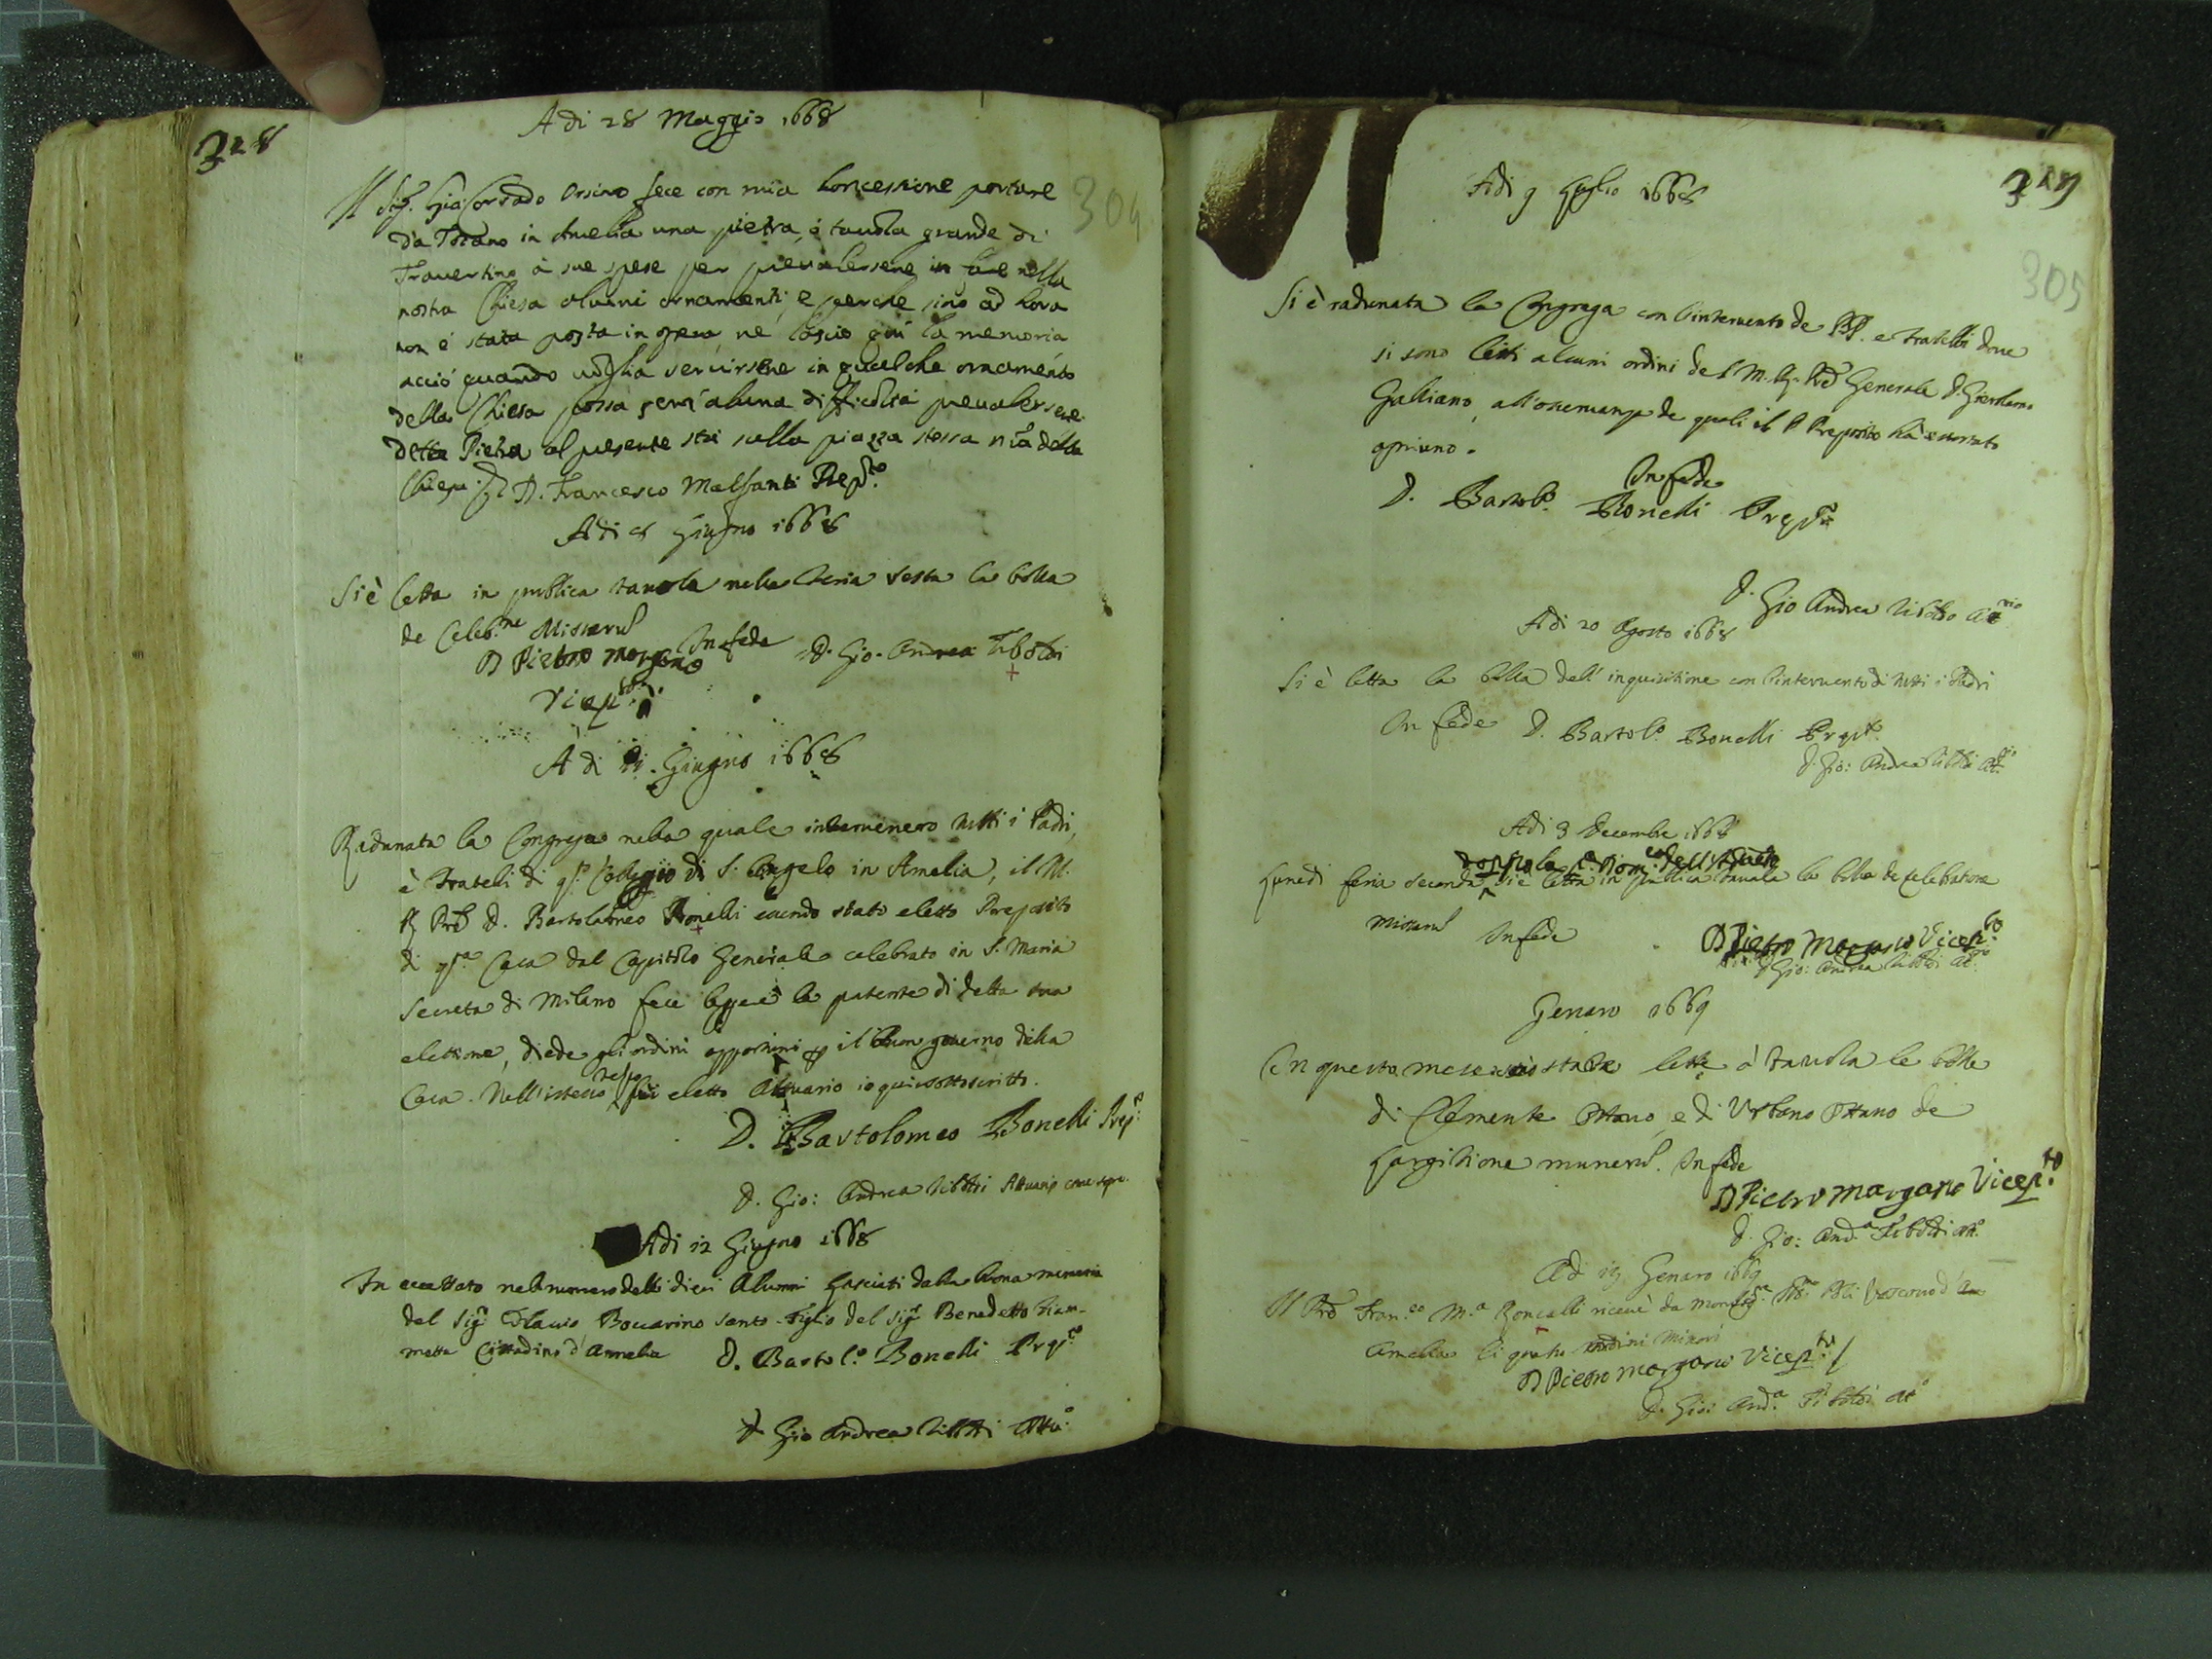 328
A di 28 Maggio 1668
304
Il Sig. Gia Corrado Orsino fece con mia Concessione portare
da Todano in Amelia una pietra, ò tauola grande di
Trauertino à sue spese per preualersene in fare nella
nostra Chiesa alcuni ornamenti, e perche sino ad hora
non è stata posta in opera, ne lascio qui la memoria
acciò quando uoglia seruirsene in qualche ornamento
della Chiesa possa senz'alcuna difficoltà preualersene.
detta Pietra al presente stà sulla piazza stessa della
Chiesa. D. Francesco Malfanti Prep.to
A di 8 Giugno 1668
Si è letta in publica tauola nella feria sesta la bolla
de Celeb.ne Missarũ
In fede D. Gio. Andrea Tiboldi
D Pietro Morgano
Vicep.to
A di 11. Giugno 1668
Radunata la Congrega nella quale interuenero tutti i Padri,
è Fratelli di q.to Collegio di S. Angelo in Amelia, il M.
R Prẽ D. Bartolomeo Bonelli essendo stato eletto Preposito
di q.sta Casa dal Capitolo Generale celebrato in S. Maria
Secreta di Milano fece leggere la patente di detta sua
elettione, diede gli ordini opportuni p il buon gouerno della
Casa. Nell'istesso fù eletto Attuario io qui sottoscritto.
D. Bartolomeo Bonelli Prep.to
D. Gio: Andrea Tiboldi Attuario come sopra.
Adi 12 Giugno 1668
Fu accettato nel numero delli dieci Alunni lasciati dalla buona memoria
del Sig.r Flauio Boccarino Santo figlio del Sig.r Benedetto
metta Cittadino d'Amelia D. Bartol.o Bonelli Prep.to
D Gio Andrea Tiboldi Attu.o
329
305
Adi 9 Luglio 1668
Si è radunata la Congrega con l'interuento de PP. e fratelli doue
si sono letti alcuni ordini del M. R. Prẽ Generale D. Gierolamo
Galliano, all'osseruanza de quali il P Preposito hà essortato
ogniuno.
In fede
D. Bartol.o Bonelli Prep.to
D. Gio Andrea Tiboldi At.rio
Adi 20 Agosto 1668
Si è letta la bolla dell'inquisitione con l'interuento di tutti i Padri
In fede D. Bartol.o Bonelli Prep.to
D. Gio: Andrea Tiboldi At.rio
Adi 3 Decembre 1668
doppo la
Lunedi feria seconda si è letta in publica tauola la bolla de celebratione
Missarũ In fede D Pietro Morgano Vicep.to
D Gio: Andrea Tiboldi At.rio
Genaro 1669
In questo mese sono state lette à tauola le bolle
di Clemente Ottauo, e di Urbano Ottauo de
Largitione munerũ. In fede
D Pietro Morgano Vicep.to
D. Gio: And.a Tiboldi Att.o
Adi 19 Genaro 1669
Il Prẽ Fran.co M.a Roncalli riceuè da Monsig.r Vescouo d'
Amelia li quattro ordini Minori
D Pietro Morgano Vicep.to
D. Gio: And.a Tiboldi At.o